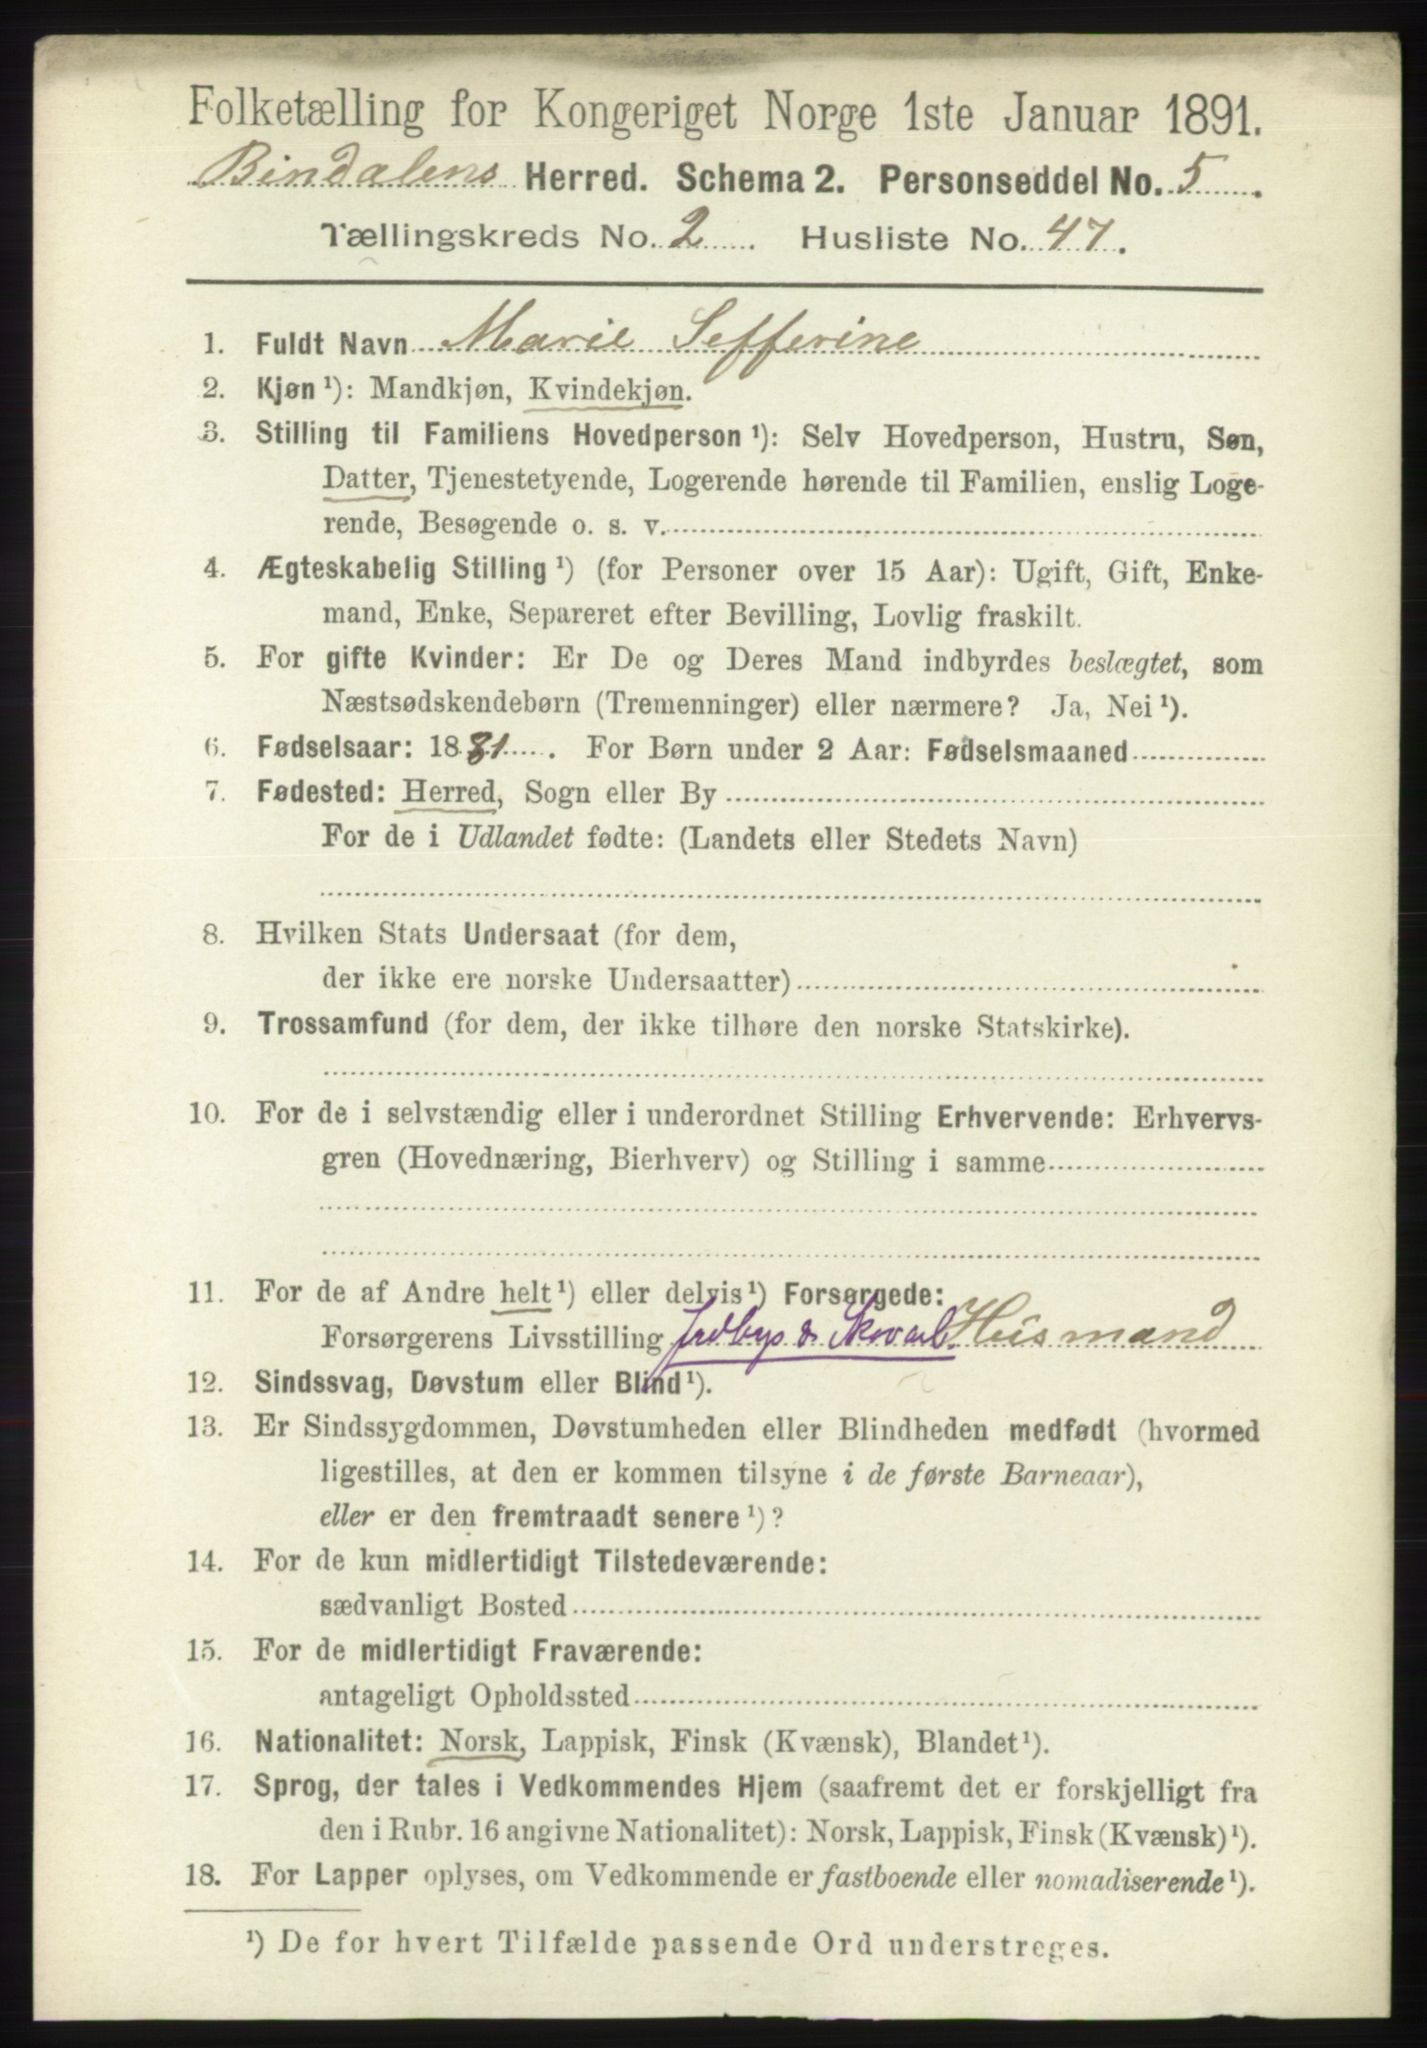 Folketælling for Kongeriget Norge 1ste Januar 1891.
Bindalens Herred. Schema 2. Personseddel No. 5.
Tællingskreds No. 2. Husliste No. 47.
1. Fuldt Navn Marie Sefferine
2. Kjøn ¹): Mandkjøn, Kvindekjøn.
3. Stilling til Familiens Hovedperson ¹): Selv Hovedperson, Hustru, Søn,
Datter, Tjenestetyende, Logerende hørende til Familien, enslig Loge-
rende, Besøgende o. s. v.
4. Ægteskabelig Stilling ¹) (for Personer over 15 Aar): Ugift, Gift, Enke-
mand, Enke, Separeret efter Bevilling, Lovlig fraskilt.
5. For gifte Kvinder: Er De og Deres Mand indbyrdes beslægtet, som
Næstsødskendebørn (Tremenninger) eller nærmere? Ja, Nei ¹).
6. Fødselsaar: 1881. For Børn under 2 Aar: Fødselsmaaned
7. Fødested: Herred, Sogn eller By
For de i Udlandet fødte: (Landets eller Stedets Navn)
8. Hvilken Stats Undersaat (for dem,
der ikke ere norske Undersaatter)
9. Trossamfund (for dem, der ikke tilhøre den norske Statskirke).
10. For de i selvstændig eller i underordnet Stilling Erhvervende: Erhvervs-
gren (Hovednæring, Bierhverv) og Stilling i samme
11. For de af Andre helt ¹) eller delvis ¹) Forsørgede:
Forsørgerens Livsstilling Jrdbr & Skovarb. Husmand
12. Sindssvag, Døvstum eller Blind ¹).
13. Er Sindssygdommen, Døvstumheden eller Blindheden medfødt (hvormed
ligestilles, at den er kommen tilsyne i de første Barneaar),
eller er den fremtraadt senere ¹)?
14. For de kun midlertidigt Tilstedeværende:
sædvanligt Bosted
15. For de midlertidigt Fraværende:
antageligt Opholdssted
16. Nationalitet: Norsk, Lappisk, Finsk (Kvænsk), Blandet ¹).
17. Sprog, der tales i Vedkommendes Hjem (saafremt det er forskjelligt fra
den i Rubr. 16 angivne Nationalitet): Norsk, Lappisk, Finsk (Kvænsk) ¹).
18. For Lapper oplyses, om Vedkommende er fastboende eller nomadiserende ¹).
¹) De for hvert Tilfælde passende Ord understreges.